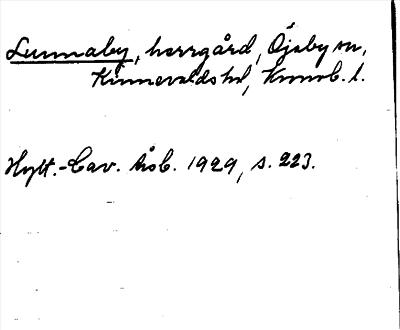 Lunnaby, herrgård, Öjaby sn,
Kinnevalds hd, Kronob. l.
Hylt.-Cav. Åsb. 1929, s. 223.